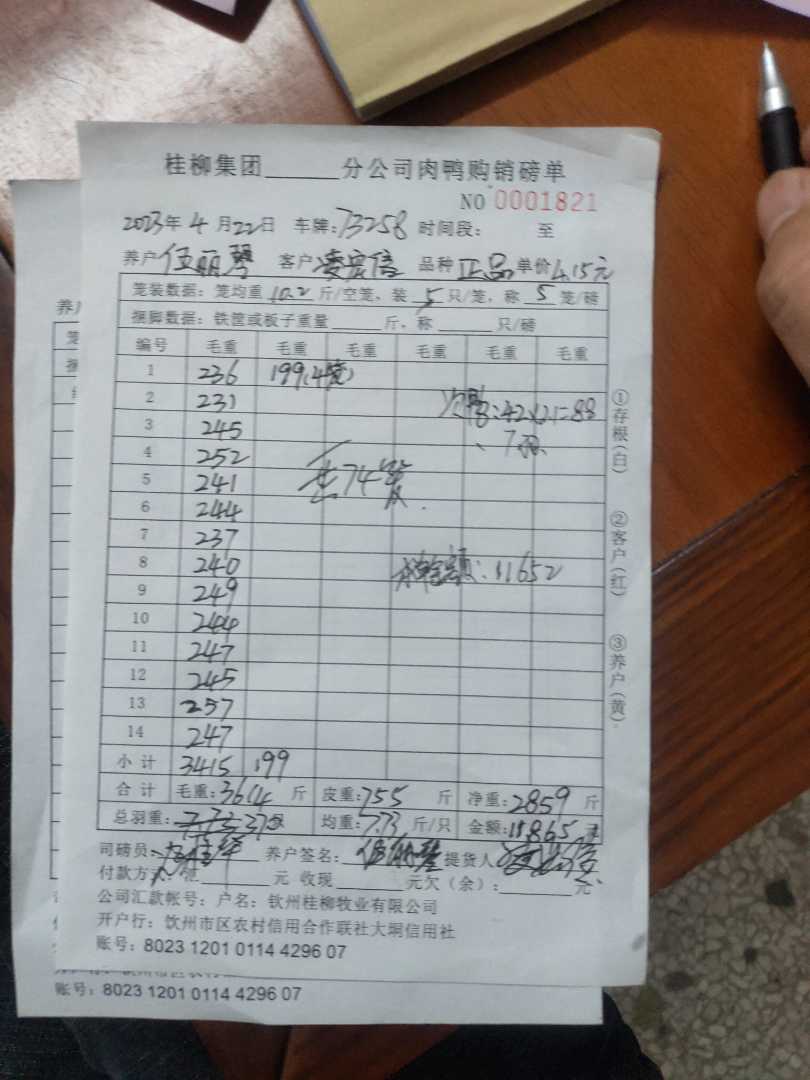 桂柳集团______分公司肉鸭购销磅单
NO 0001821
2023年 4 月 22日 车牌:73258 时间段: 至
养户 伍丽琴 客户 凌宏信 品种 正品 单价 4.15元
笼装数据: 笼均重 10.2 斤/空笼, 装 5 只/笼, 称 5 笼/磅
捆脚数据: 铁筐或板子重量______斤, 称______只/磅
编号 毛重 毛重 毛重 毛重 毛重 毛重
1 236 199(4笼)
2 231
3 245
4 252
5 241
6 244
7 237
8 240
9 249
10 244
11 247
12 245
13 257
14 247
:42×2.1=88
7
共74笼
:11652
小计 3415 199
合计 毛重:3614 斤 皮重:755 斤 净重:2859 斤
总羽重: 370 均重:7.73 斤/只 金额:11865 元
司磅员: 养户签名: 伍丽琴 提货人
付款方式: 汇______元 收现______元欠（余）:______元
公司汇款帐号: 户名: 钦州桂柳牧业有限公司
开户行: 饮州市区农村信用合作联社大垌信用社
账号: 8023 1201 0114 4296 07
①存根(白) ②客户(红) ③养户(黄)
养户
账号: 8023 1201 0114 4296 07